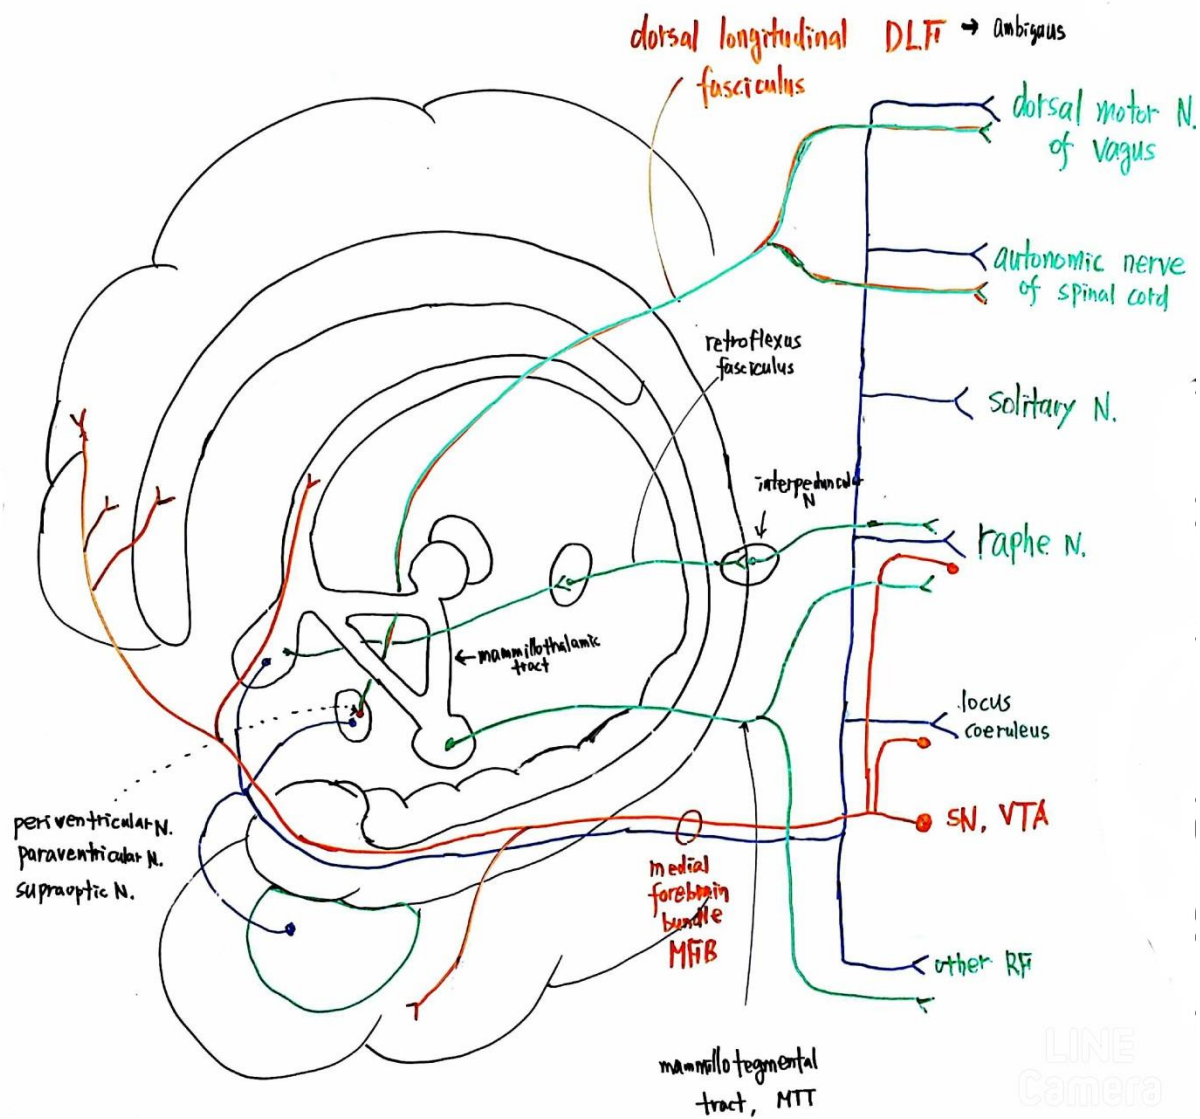 dorsal longitudinal DLF → ambigaus
fasciculus
dorsal motor N.
of vagus
autonomic nerve
of spinal cord
retroflexus
fasciculus
solitary N.
interpeduncular
N
raphe N.
← mammillothalamic
tract
locus
coeruleus
periventricular N.
paraventricular N.
supraoptic N.
SN, VTA
medial
forebrain
bundle
MFB
other RF
mammillotegmental
tract, MTT
LINE
Camera